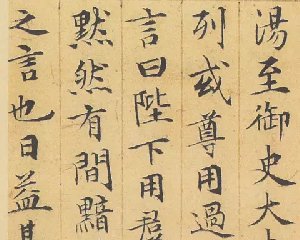 湯至御史大
列或尊用過
言曰陛下用君
黙然有間黯
之言也日益甚